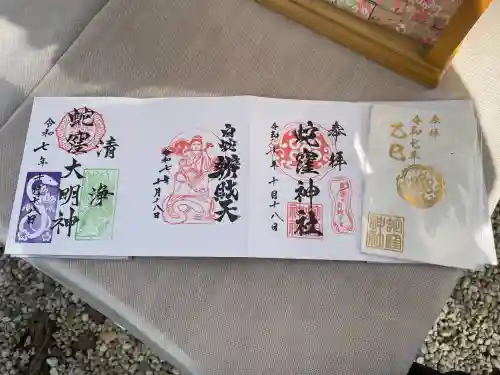 奉拝
令和七年
乙巳
奉拝
蛇窪神社
令和七年十月十八日
白蛇辨財天
令和七年十月十八日
清
浄
蛇窪大明神
令和七年
十月十八日